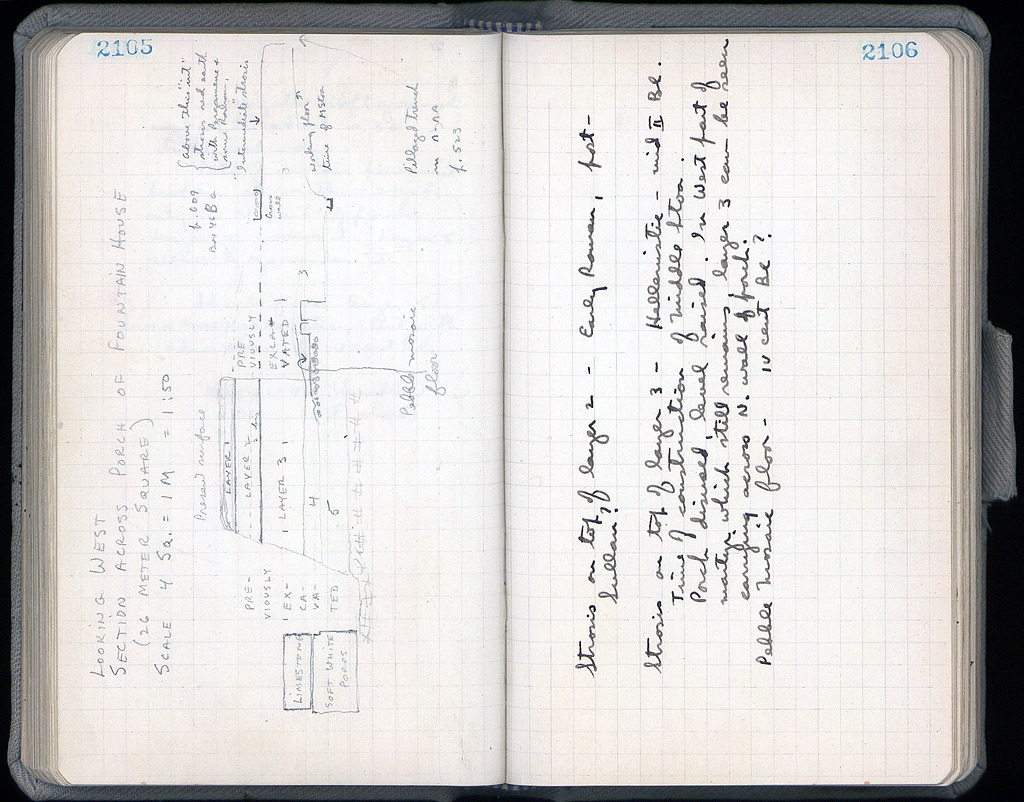 2105
LOOKING WEST
SECTION ACROSS PORCH OF FOUNTAIN HOUSE
(26 METER SQUARE)
SCALE 4 SQ. = 1 M = 1:50
Present surface
LAYER 1
LAYER 2
LAYER 3
4
5
PRE-
VIOUSLY
EX-
CA-
VA-
TED
LIMESTONE
SOFT WHITE
POROS
PRE-
VIOUSLY
EXCA-
VATED
3
3
p. 609
Box 46 B a
above this "int"
strosis red earth
with Pergamene &
some Roman
"Intermediate" strosis
Cross
wall
working floor
time of MStoa
Pebble mosaic
floor
Pillaged trench
in A-AA
p. 523
2106
Strosis on top of layer 2 - Early Roman, post-
Sullan?
Strosis on top of layer 3 - Hellenistic - mid II BC.
Time of construction of Middle Stoa.
Porch disused, level raised. In West part of
which still remains layer 3 can be seen
carrying across N. wall of porch.
Pebble mosaic floor - IV cent BC?